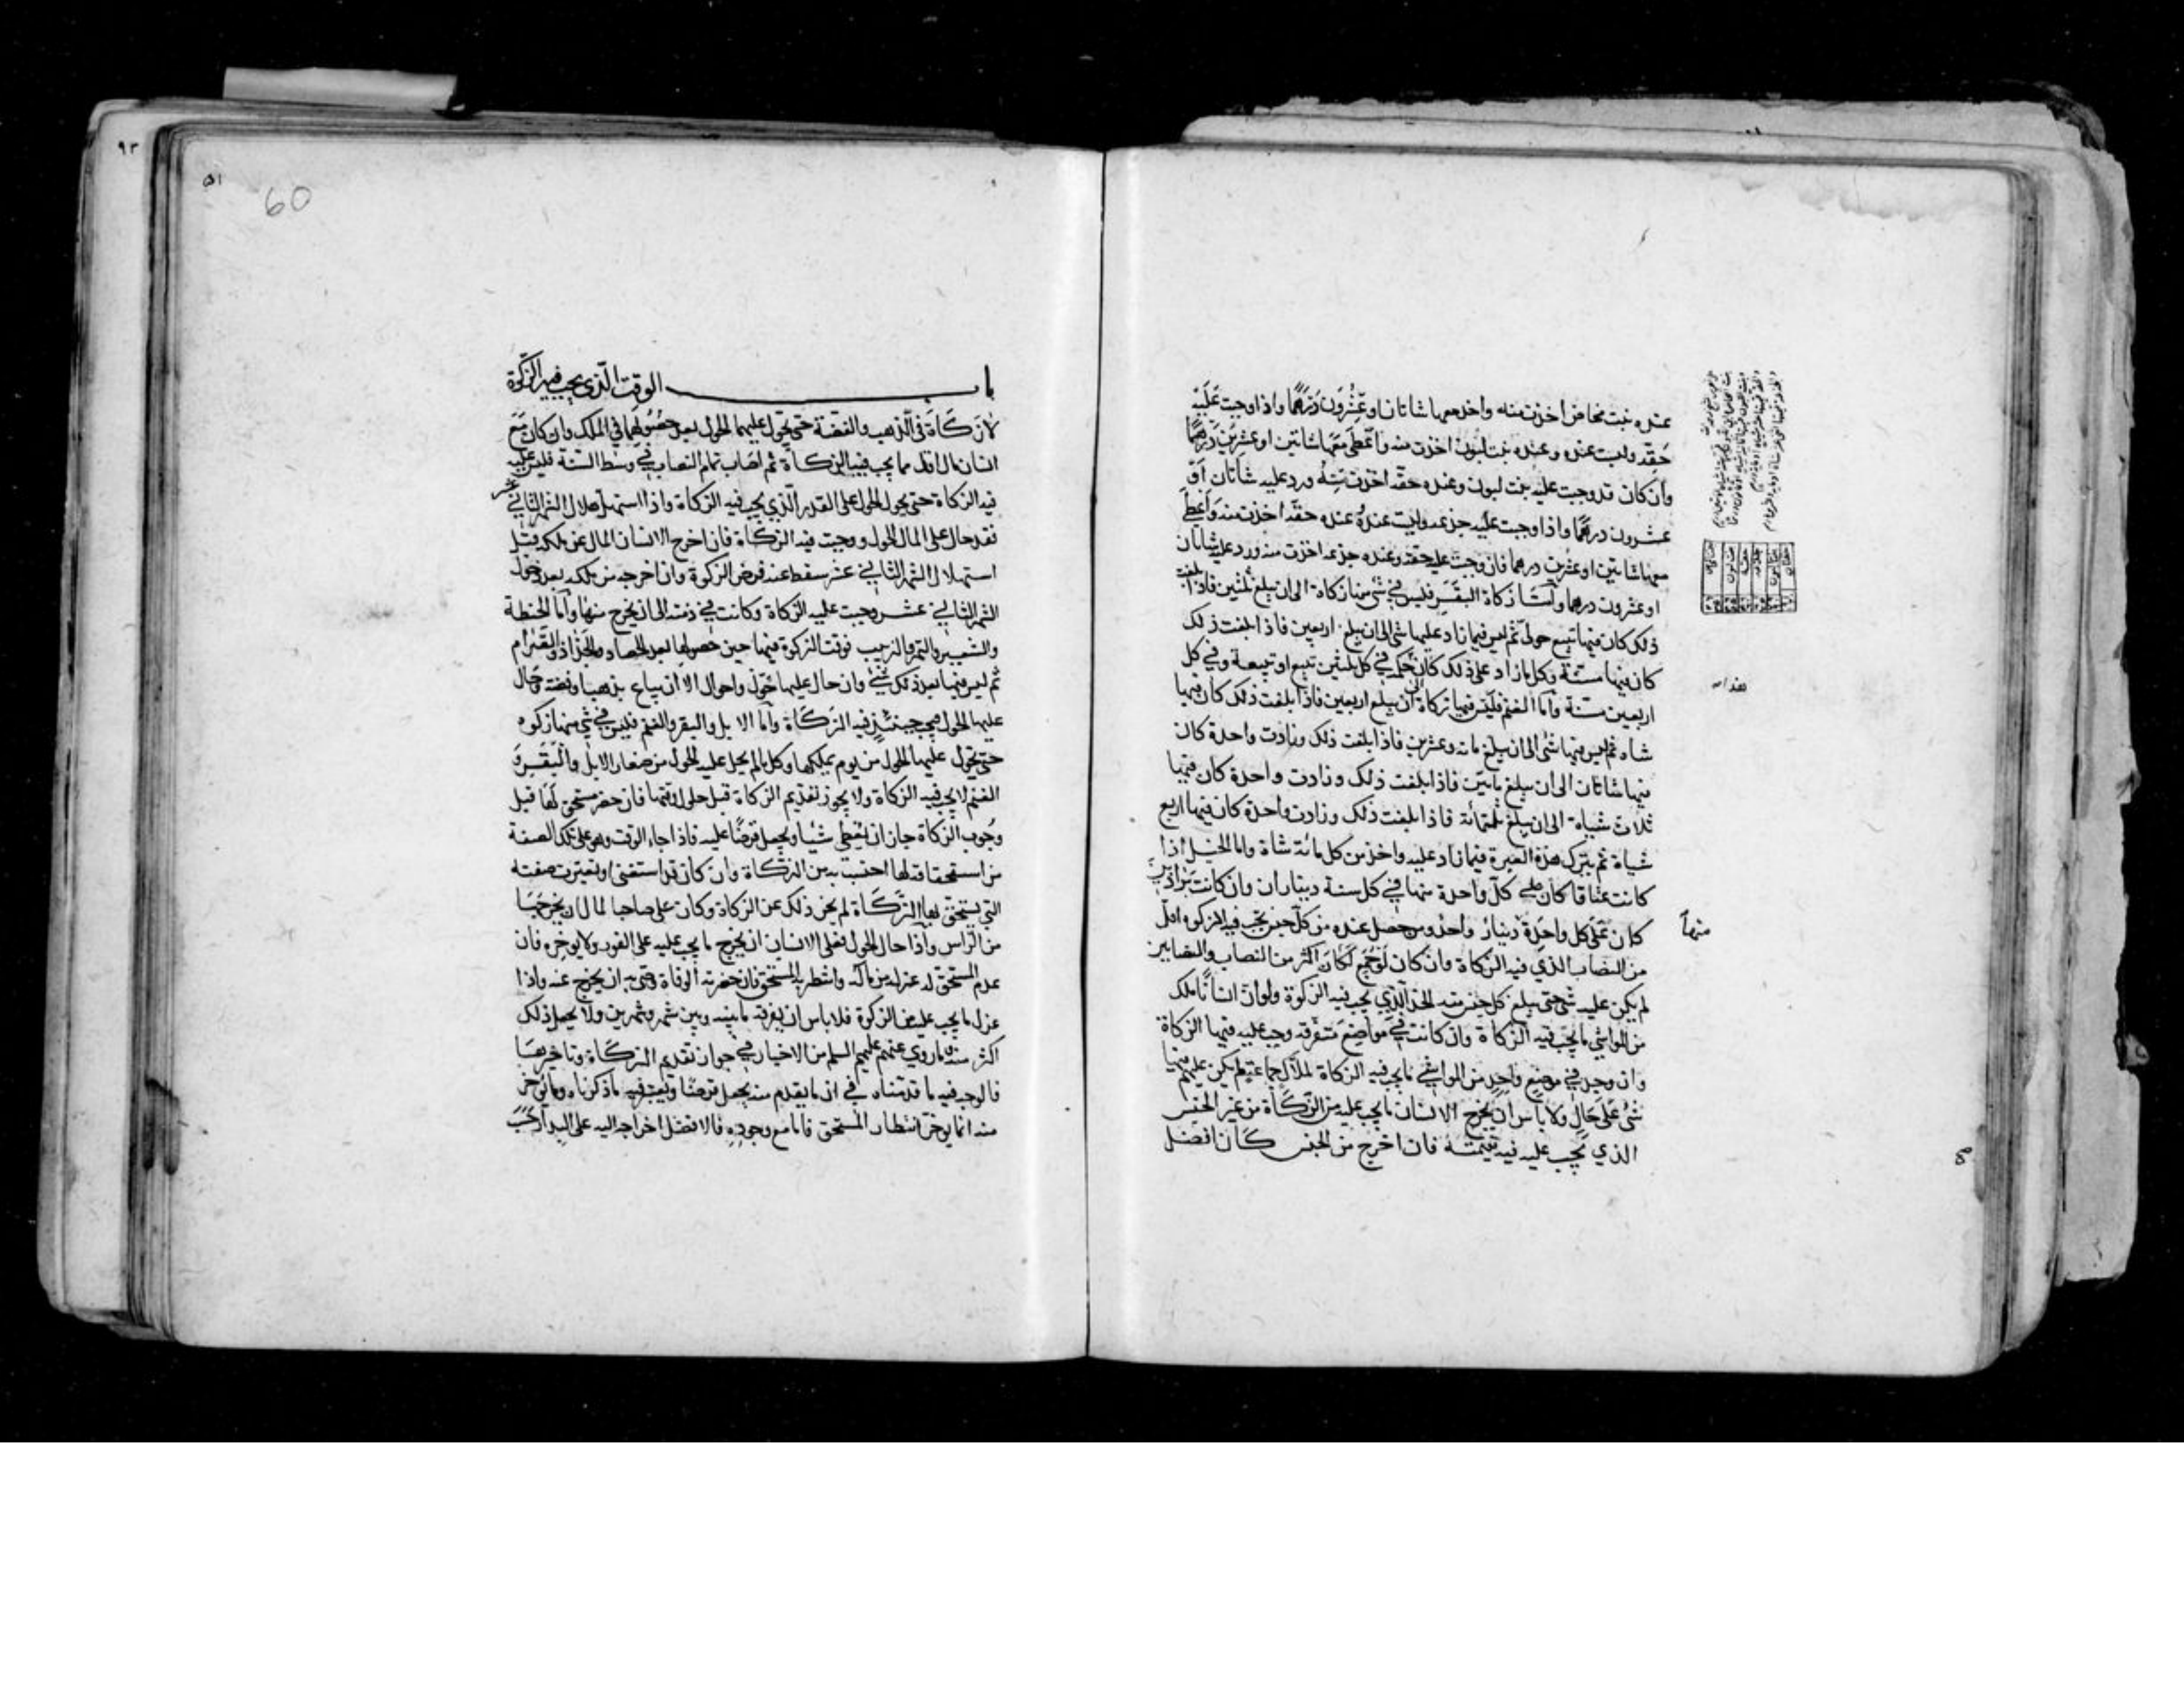 عنده بنت مخاض اخذت منه واخذ معها شاتان او عشرون درهما واذا وجبت عليه
حقة وليست عنده وعنده بنت لبون اخذت منه واعطى معها شاتين او عشرين درهما
وان كان قد وجبت عليه بنت لبون وعنده حقة اخذت منه ورد عليه شاتان او
عشرون درهما واذا وجبت عليه جذعة وليست عنده وعنده حقة اخذت منه واعطى
معها شاتين او عشرين درهما فان وجبت عليه حقة وعنده جذعة اخذت منه ورد عليه شاتان
او عشرون درهما واما زكاة البقر فليس في شئ منها زكاة الى ان يبلغ ثلثين فاذا بلغت
ذلك كان فيها تبيع حولي ثم ليس فيما زاد عليها شئ الى ان يبلغ اربعين فاذا بلغت ذلك
كان فيها مسنة وكل ما زاد على ذلك كان حكمه في كل ثلثين تبيع او تبيعة وفي كل
اربعين مسنة واما الغنم فليس فيها زكاة الى ان يبلغ اربعين فاذا بلغت ذلك كان فيها
شاة ثم ليس فيها شئ الى ان يبلغ مائة وعشرين فاذا بلغت ذلك وزادت واحدة كان
فيها شاتان الى ان يبلغ مأتين فاذا بلغت ذلك وزادت واحدة كان فيها
ثلاث شياه الى ان يبلغ ثلثمائة فاذا بلغت ذلك وزادت واحدة كان فيها اربع
شياة ثم يترك هذه العبرة فيما زاد عليه واخذ من كل مائة شاة واما الخيل اذا
كانت عتاقا كان على كل واحدة منها في كل سنة ديناران وان كانت براذين
كان على كل واحدة دينار واحد ومن حصل عنده من كل جنس تجب فيه الزكوة اقل
من النصاب الذي فيه الزكاة وان كان لو جمع لكان اكثر من النصاب والنصابين
لم يكن عليه شئ حتى يبلغ كل جنس منه الحد الذي يجب فيه الزكوة ولو ان انسانا ملك
من المواشي ما يجب فيه الزكاة وان كانت في مواضع متفرقة وجب عليه فيها الزكاة
وان وجد في موضع واحد من المواشي ما يجب فيه الزكاة لملاك جماعة لم يكن عليهم فيها
شئ على حال ولا بأس ان يخرج الانسان ما يجب عليه من الزكاة من غير الجنس
الذي يجب عليه فيه بقيمته فان اخرج من الجنس كان افضل
منها
٩٣
٥١
60
باب الوقت الذي يجب فيه الزكوة
لا زكاة في الذهب والفضة حتى يحول عليهما الحول بعد حصولهما في الملك وان كان مع
انسان مال اقل مما يجب فيه الزكاة ثم اصاب تمام النصاب في وسط السنة فليس عليه
فيه الزكاة حتى يحول الحول على القدر الذي يجب فيه الزكاة واذا استهل هلال الشهر الثاني عشر
فقد حال على المال الحول ووجبت فيه الزكاة فان اخرج الانسان المال عن ملكه قبل
استهلال الشهر الثاني عشر سقط عنه فرض الزكوة وان اخرجه من ملكه بعد دخول
الشهر الثاني عشر وجبت عليه الزكاة وكانت في ذمته الى ان يخرج منها واما الحنطة
والشعير والتمر والزبيب فوقت الزكوة فيها حين حصولها بعد الحصاد والجذاذ والصرام
ثم ليس فيها بعد ذلك شئ وان حال عليها حول واحوال الا ان يباع بذهب او فضة وحال
عليها الحول فيجب حينئذ فيه الزكاة واما الابل والبقر والغنم فليس في شئ منها زكوه
حتى يحول عليها الحول من يوم يملكها وكل ما لم يحل عليه الحول من صغار الابل والبقر و
الغنم لا يجب فيه الزكاة ولا يجوز تقديم الزكاة قبل حلول وقتها فان حضر مستحق لها قبل
وجوب الزكاة جاز ان يعطى شيئا ويجعل قرضا عليه فاذا جاء الوقت وهو على تلك الصفة
من استحقاقه لها احتسب به من الزكاة وان كان قد استغنى او تغيرت صفته
التي يستحق بها الزكاة لم يجز ذلك عن الزكاة وكان على صاحب المال ان يخرجها
من الراس واذا حال الحول فعلى الانسان ان يخرج ما يجب عليه على الفور ولا يوخره فان
عدم المستحق له عزله من ماله وانتظر به المستحق فان حضرته الوفاة وصى به ان يخرج عنه واذا
عزل ما يجب عليه من الزكوة فلا باس ان يفرقه ما بينه وبين شهر وشهرين ولا يجعل ذلك
اكثر منه وما روي عنهم عليهم السلم من الاخبار في جواز تقديم الزكاة وتاخيرها
فالوجه فيه ما قدمناه في ان ما يقدم منه يجعل قرضا ويعتبر فيه ما ذكرناه وما يوخر
منه انما يوخر انتظار المستحق فاما مع وجوده فالافضل اخراجه اليه على البدار حسب